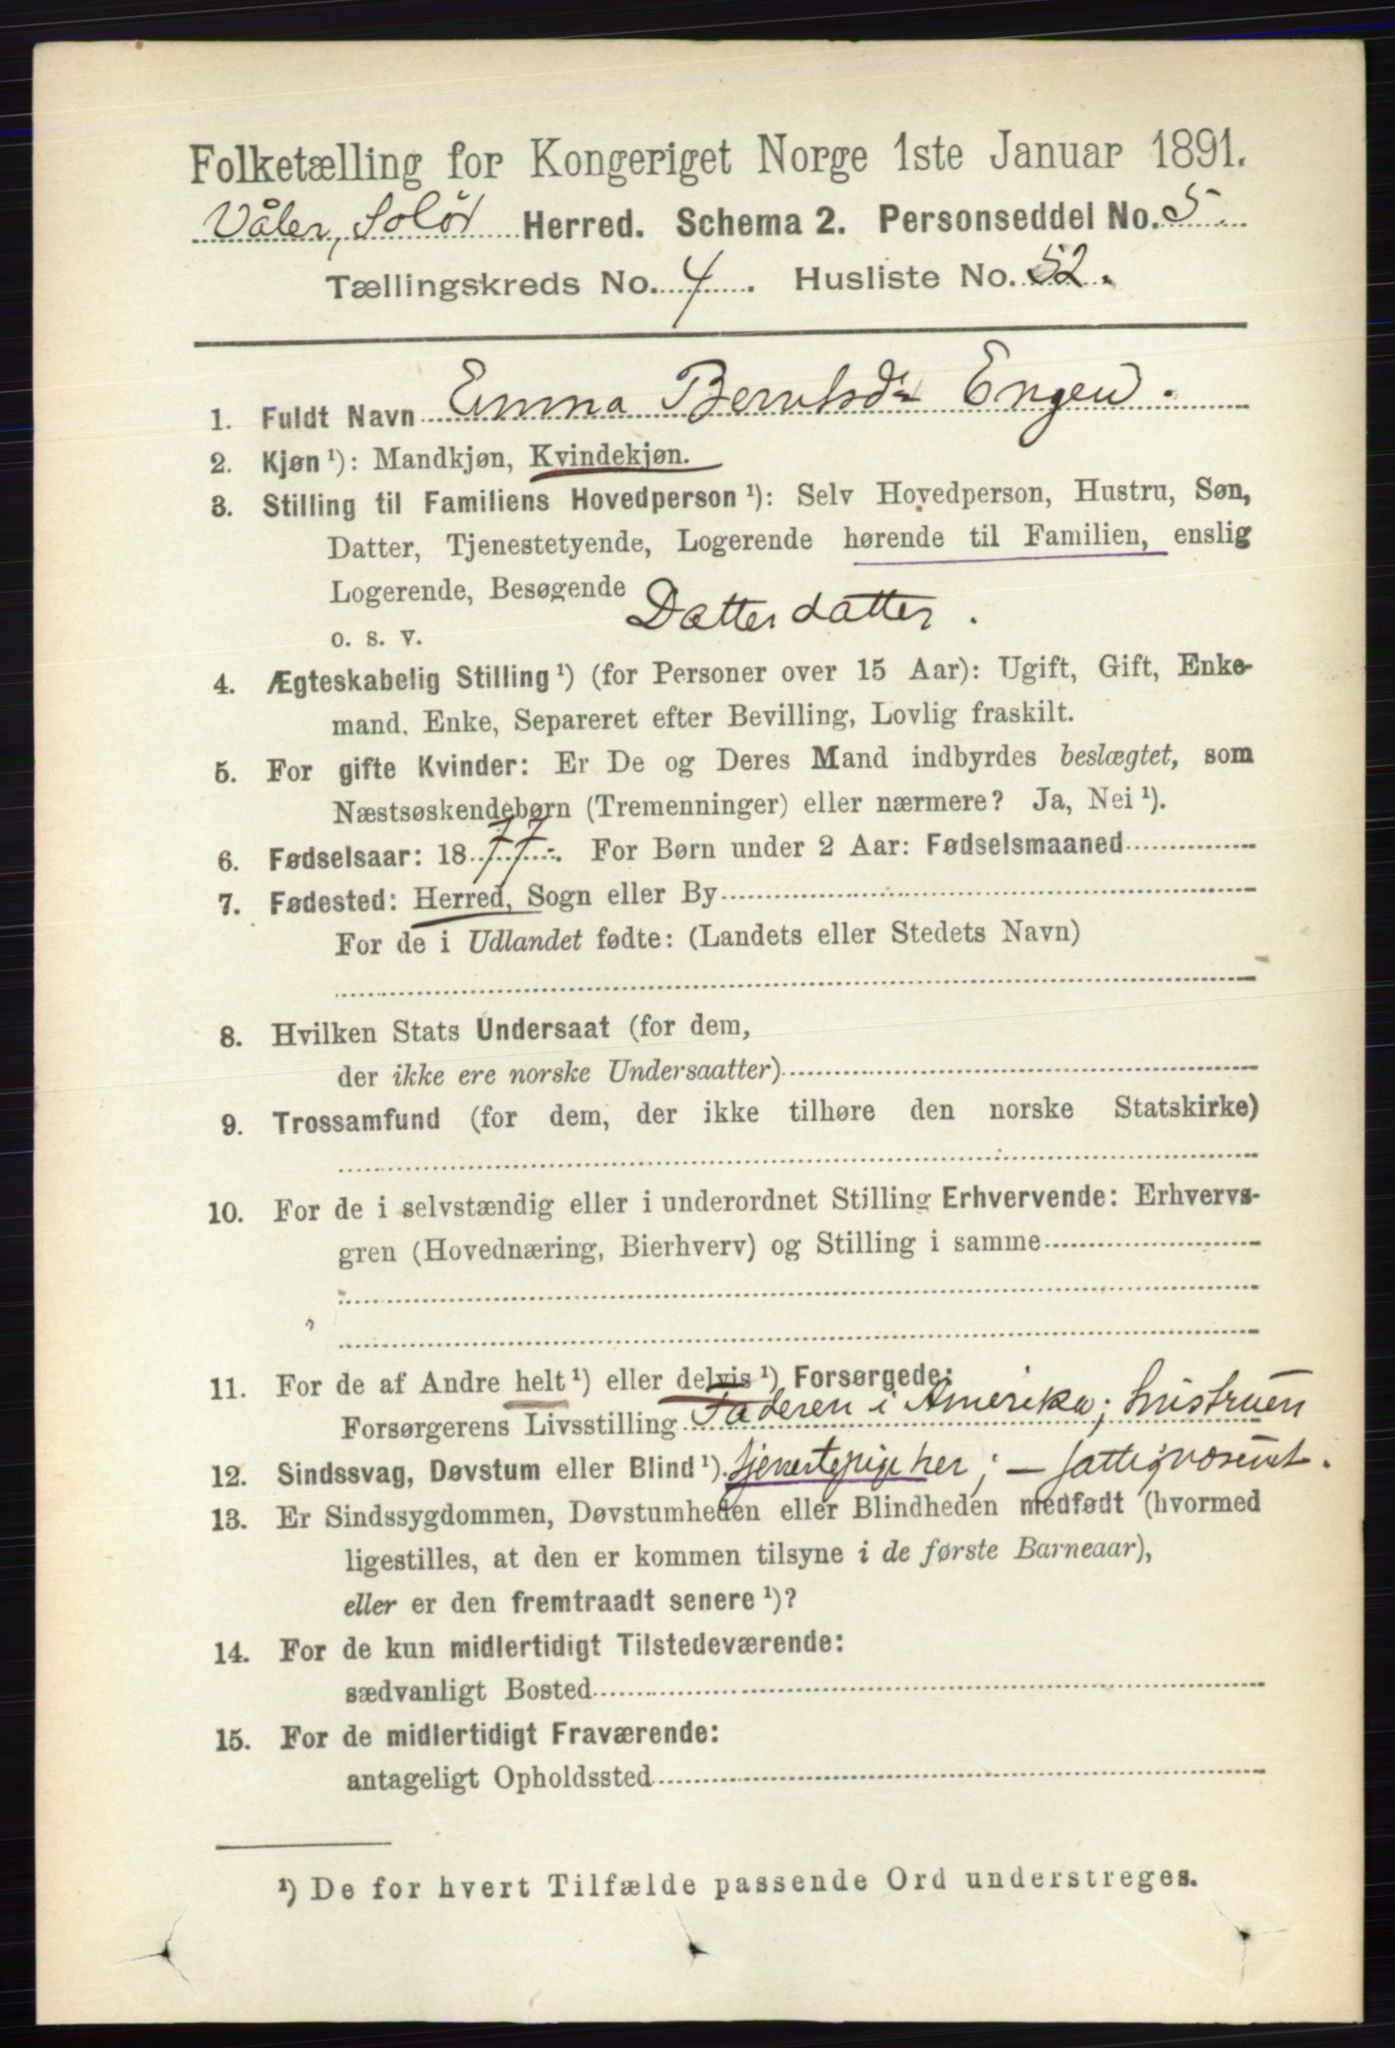 Folketælling for Kongeriget Norge 1ste Januar 1891.
Våler, Solør Herred. Schema 2. Personseddel No. 5.
Tællingskreds No. 4. Husliste No. 52.
1. Fuldt Navn Emma Berntsdr Engen.
2. Kjøn ¹): Mandkjøn, Kvindekjøn.
3. Stilling til Familiens Hovedperson ¹): Selv Hovedperson, Hustru, Søn,
Datter, Tjenestetyende, Logerende hørende til Familien, enslig
Logerende, Besøgende
o. s. v. Datterdatter.
4. Ægteskabelig Stilling ¹) (for Personer over 15 Aar): Ugift, Gift, Enke-
mand, Enke, Separeret efter Bevilling, Lovlig fraskilt.
5. For gifte Kvinder: Er De og Deres Mand indbyrdes beslægtet, som
Næstsøskendebørn (Tremenninger) eller nærmere? Ja, Nei ¹).
6. Fødselsaar: 1877. For Børn under 2 Aar: Fødselsmaaned
7. Fødested: Herred, Sogn eller By
For de i Udlandet fødte: (Landets eller Stedets Navn)
8. Hvilken Stats Undersaat (for dem,
der ikke ere norske Undersaatter)
9. Trossamfund (for dem, der ikke tilhøre den norske Statskirke)
10. For de i selvstændig eller i underordnet Stilling Erhvervende: Erhvervs-
gren (Hovednæring, Bierhverv) og Stilling i samme
11. For de af Andre helt ¹) eller delvis ¹) Forsørgede:
Forsørgerens Livsstilling Faderen i Amerika; hustruen
12. Sindssvag, Døvstum eller Blind ¹). tjenestepige her; – fattigvæsent.
13. Er Sindssygdommen, Døvstumheden eller Blindheden medfødt (hvormed
ligestilles, at den er kommen tilsyne i de første Barneaar),
eller er den fremtraadt senere ¹)?
14. For de kun midlertidigt Tilstedeværende:
sædvanligt Bosted
15. For de midlertidigt Fraværende:
antageligt Opholdssted
¹) De for hvert Tilfælde passende Ord understreges.